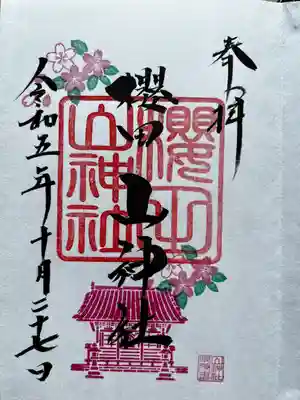 奉拝
櫻田山神社
令和五年十月二十七日
櫻田
山神社